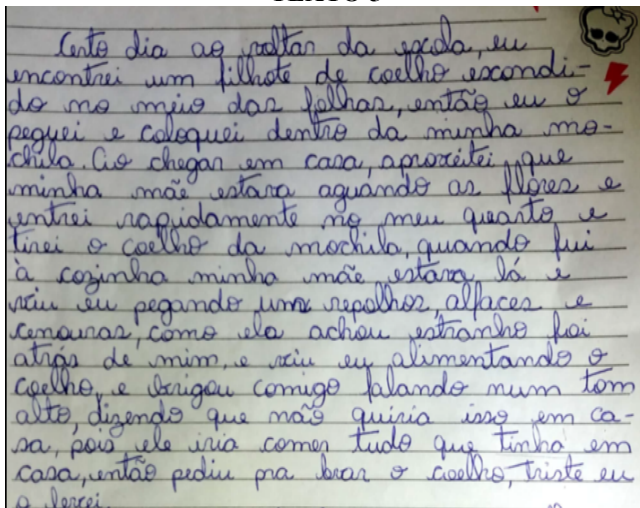 TEXTO 3
Certo dia ao voltar da escola, eu
encontrei um filhote de coelho escondi-
do no meio das folhas, então eu o
peguei e coloquei dentro da minha mo-
chila. Ao chegar em casa, aproveitei que
minha mãe estava aguando as flores e
entrei rapidamente no meu quarto e
tirei o coelho da mochila, quando fui
à cozinha minha mãe estava lá e
viu eu pegando uns repolhos, alfaces e
cenouras, como ela achou estranho foi
atrás de mim, e viu eu alimentando o
coelho, e brigou comigo falando num tom
alto, dizendo que não quiria isso em ca-
sa, pois ele iria comer tudo que tinha em
casa, então pediu pra levar o coelho, triste eu
o levei.